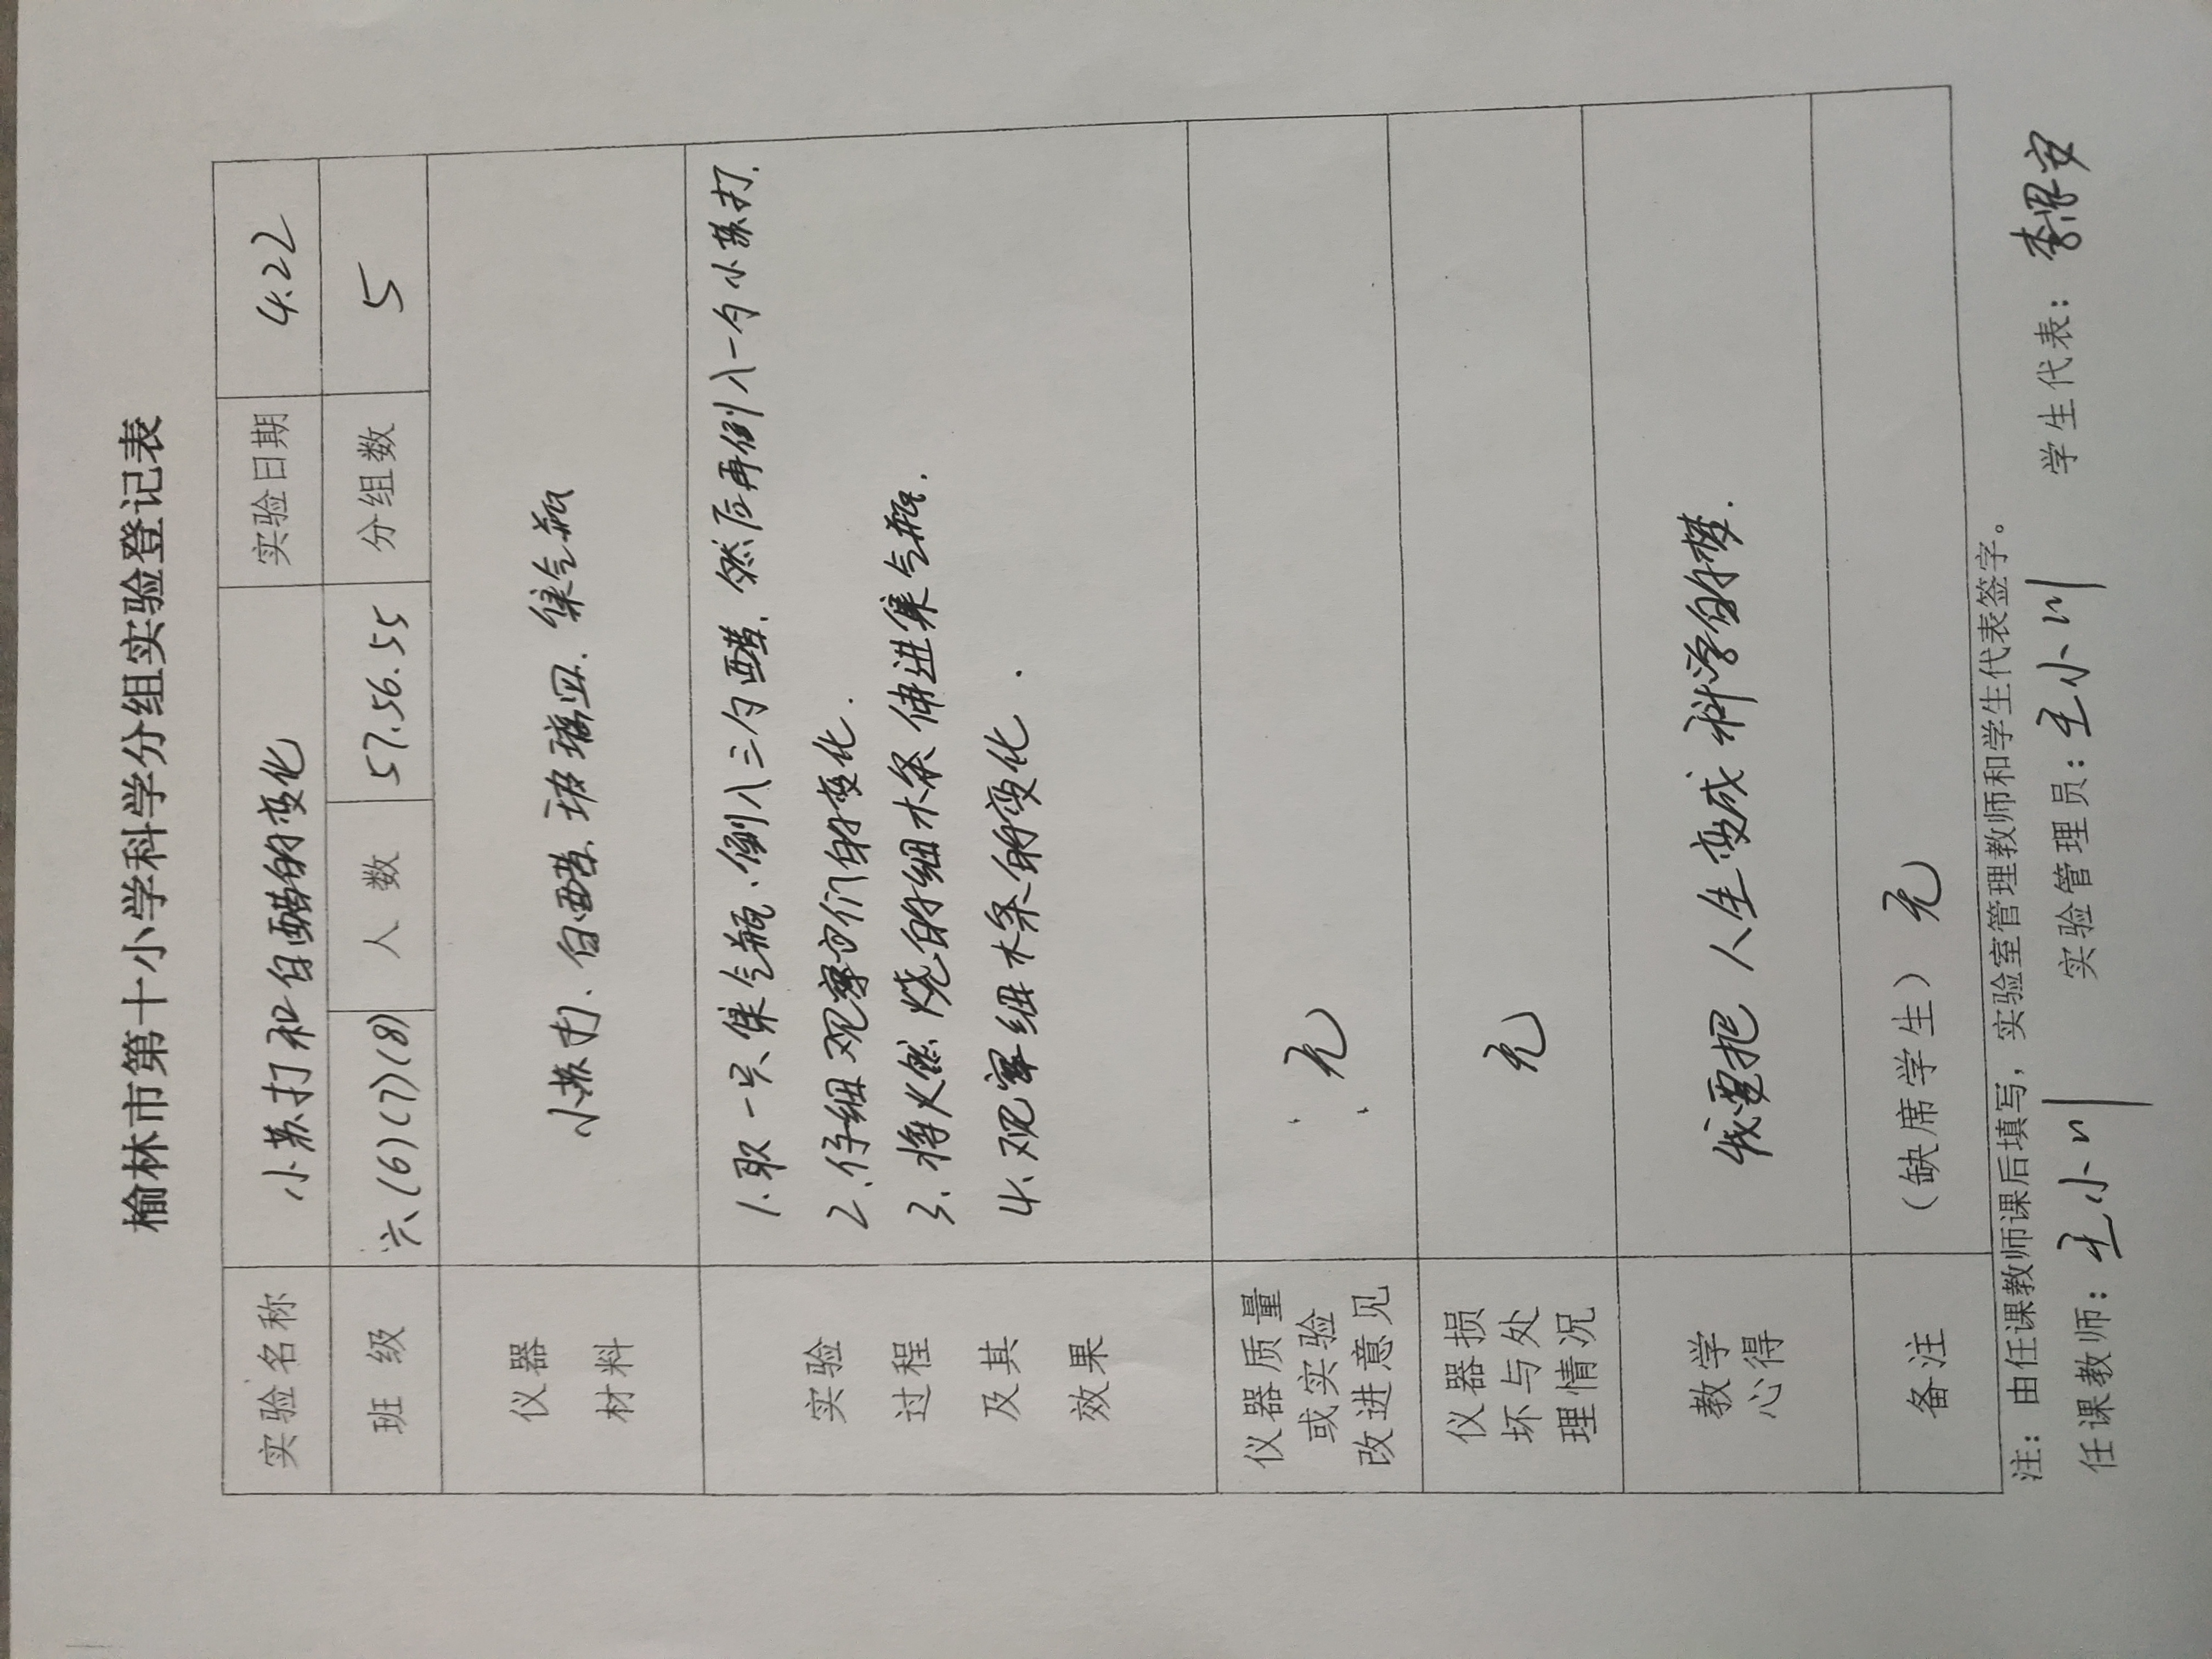 榆林市第十小学科学分组实验登记表
实验名称 小苏打和白醋的变化 实验日期 4.22
班 级 六(6)(7)(8) 人 数 57.56.55 分组数 5
仪器
材料
小苏打、白醋、玻璃皿、集气瓶
实验
过程
及其
效果
1.取一只集气瓶、倒入三勺醋、然后再倒入一勺小苏打.
2.仔细观察它们的变化.
3.将火燃烧的细木条伸进集气瓶.
4.观察细木条的变化.
仪器质量
或实验
改进意见
无
仪器损
坏与处
理情况
无
教学
心得
我要把人生变成科学的梦.
备注 (缺席学生) 无
注:由任课教师课后填写,实验室管理教师和学生代表签字。
任课教师:王小川 实验管理员:王小川 学生代表:李